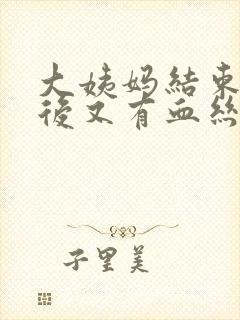 大姨妈結束
後又有血絲
子里美